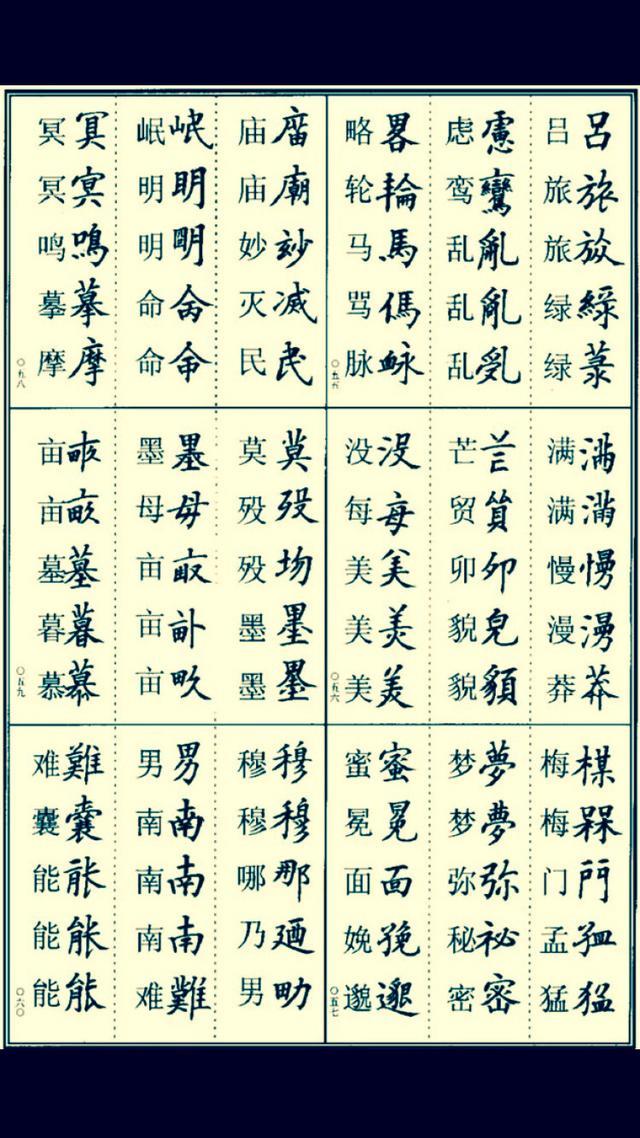 吕呂 旅旅 旅 绿綠 绿菉
虑慮 鸾鸞 乱亂 乱亂 乱
略畧 轮輪 马馬 骂傌 脉衇
〇五五
满满 满满 慢慢 漫漫 莽莽
芒芒 贸貿 卯卯 貌皃 貌貌
没没 每每 美美 美羙 美羙
〇五六
梅楳 梅槑 门門 孟孟 猛猛
梦夢 梦夢 弥弥 秘祕 密密
蜜蜜 冕冕 面面 娩娩 邈邈
〇五七
庙庿 庙廟 妙玅 灭滅 民民
岷岷 明眀 明明 命命 命命
冥冥 冥冥 鸣鳴 摹摹 摩摩
〇五八
莫莫 殁歿 殁歾 墨墨 墨墨
墨墨 母母 亩畝 亩 亩畂
亩畞 亩畝 墓墓 暮暮 慕慕
〇五九
穆穆 穆穆 哪那 乃迺 男甽
男男 南南 南南 南南 难難
难難 囊囊 能能 能能 能能
〇六〇